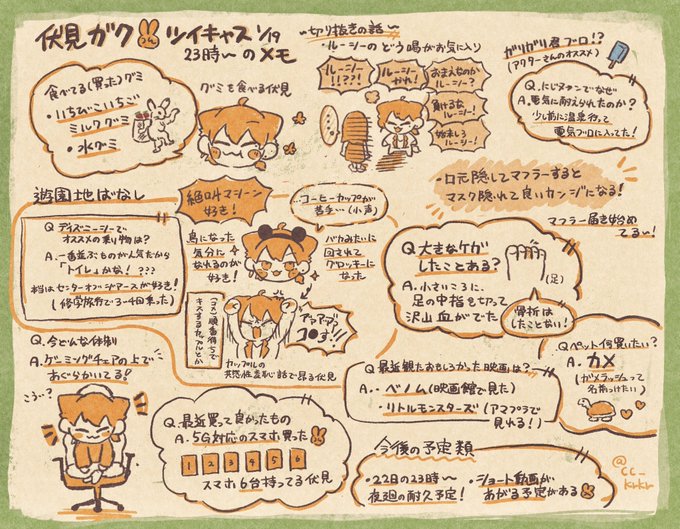 伏見ガク ツイキャス 1/19
23時〜のメモ
食べてる(買った)グミ
・いちびこいちご
ミルクグミ
・水グミ
グミを食べる伏見
〜切り抜きの話〜
・ルーシーのどう喝がお気に入り
ルーシー
!!???!
ルーシー
やれ!
おまえなのか
ルーシー?
負けるな
ルーシー!
始末しろ
ルーシー!
ガリガリ君ブロ!?
(アクターさんのオススメ)
Q.にじヌァンでなぜ
A.電気に耐えられたのか?
少し前に温泉行って
電気ブロに入ってた!
・口元隠してマフラーすると
マスク隠れて良いカンジになる!
マフラー届き始め
てるぅ!
遊園地ばなし
Q ディズニーシーで
オススメの乗り物は?
A.一番並ぶものが人気だから
「トイレ」かな! ???
本当はセンターオブジアースが好き!
(修学旅行で3〜4回乗った)
絶叫マシーン
好き!
鳥になった
気分に
なれるのが
好き!
...コーヒーカップが
苦手...(小声)
バカみたいに
回されて
グロッキーに
なった
(コス)順番待ちで
キスするカップルとか
アァアッッ
コ●す!!!
カップルの
共感性羞恥話で昂る伏見
Q 大きなケガ
したことある?
A.小さいころに
足の中指を切って
沢山血がでた
(足)
骨折は
したことない!
Q.今どんな体制
A.ゲーミングチェアの上で
あぐらかいてる!
ころ...?
Q.最近買って良かったもの
A.5G対応のスマホ買った
1 2 3 4 5 6
スマホ6台持ってる伏見
Q 最近観たおもしろかった映画は?
A.・ベノム(映画館で見た)
・リトルモンスターズ(アマプラで
見れる!)
Qペット何買いたい?
A.カメ
(ガメラッシュって
名前つけたい)
今後の予定類
・22日の23時〜
夜廻の耐久予定!
・ショート動画が
あがる予定がある
@cc_
krkr